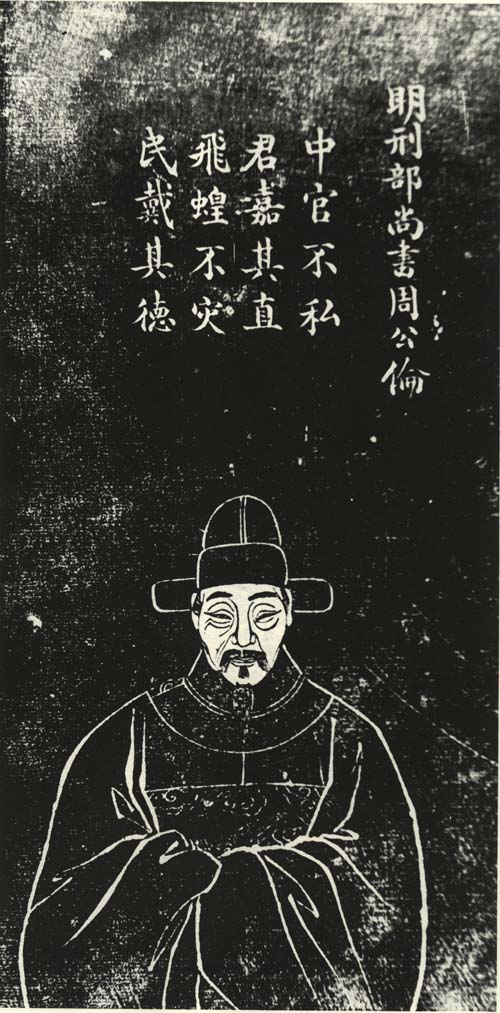 明刑部尚書周公倫
中官不私
君嘉其直
飛蝗不灾
民戴其德